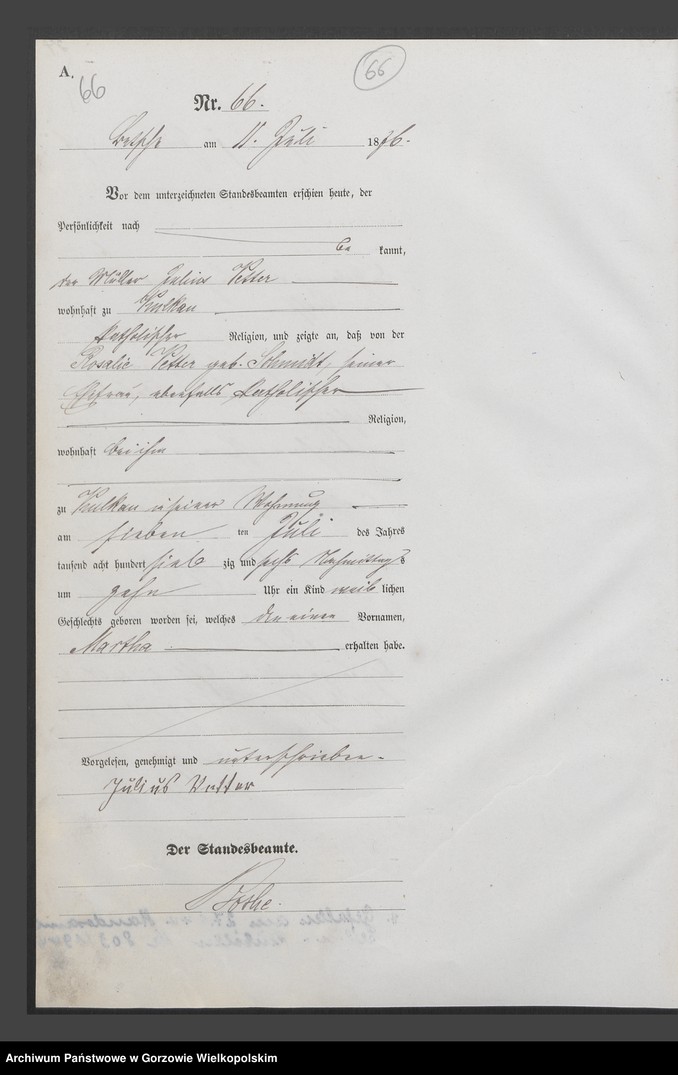 A.
66
66
Nr. 66.
Betsche am 11. Juli 1876.
Vor dem unterzeichneten Standesbeamten erschien heute, der
Persönlichkeit nach
be kannt,
der Müller Julius Vetter
wohnhaft zu Kulkau
katholischer Religion, und zeigte an, daß von der
Rosalie Vetter geb. Schmidt, seiner
Ehefrau, ebenfalls katholischer
Religion,
wohnhaft bei ihm
zu Kulkau in seiner Wohnung
am sieben ten Juli des Jahres
tausend acht hundert sieb zig und sechs Nachmittags
um zehn Uhr ein Kind weib lichen
Geschlechts geboren worden sei, welches den einen Vornamen,
Martha erhalten habe.
Vorgelesen, genehmigt und unterschrieben.
Julius Vetter
Der Standesbeamte.
Archiwum Państwowe w Gorzowie Wielkopolskim